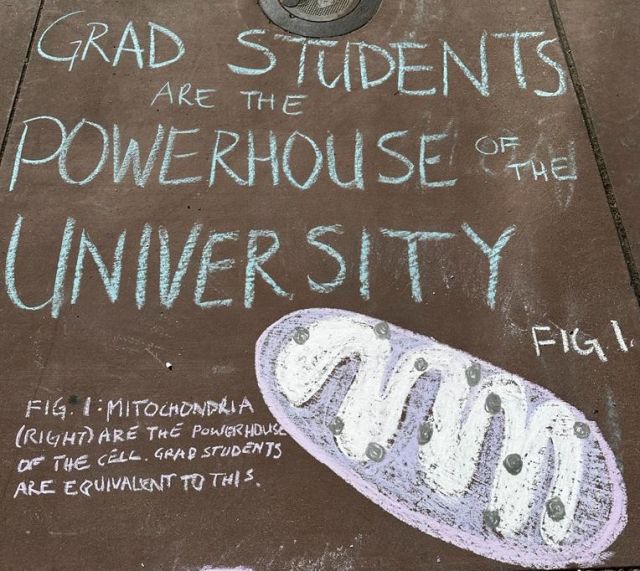 GRAD STUDENTS
ARE THE
POWERHOUSE OF THE
UNIVERSITY
FIG 1.
FIG. 1: MITOCHONDRIA
(RIGHT) ARE THE POWERHOUSE
OF THE CELL. GRAD STUDENTS
ARE EQUIVALENT TO THIS.